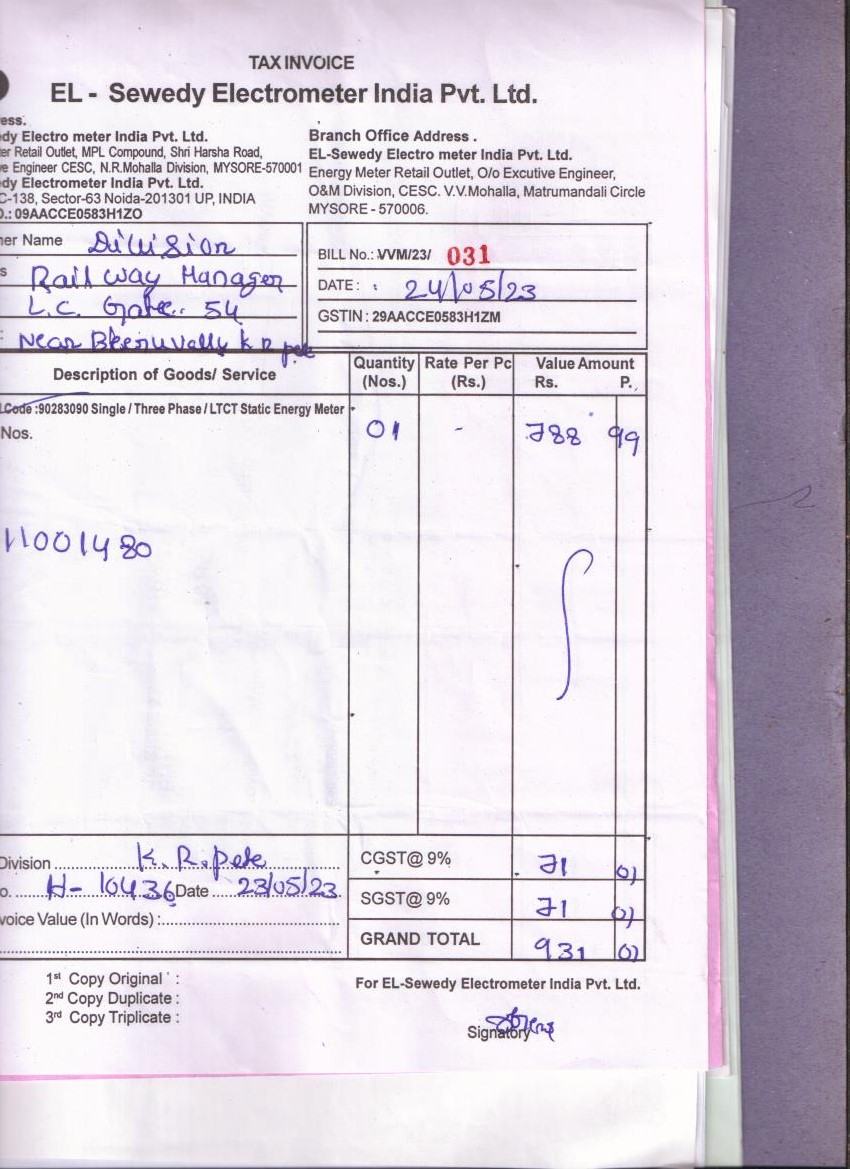 TAX INVOICE
EL - Sewedy Electrometer India Pvt. Ltd.
ess.
dy Electro meter India Pvt. Ltd.
er Retail Outlet, MPL Compound, Shri Harsha Road,
e Engineer CESC, N.R.Mohalla Division, MYSORE-570001
dy Electrometer India Pvt. Ltd.
C-138, Sector-63 Noida-201301 UP, INDIA
O.: 09AACCE0583H1ZO
Branch Office Address .
EL-Sewedy Electro meter India Pvt. Ltd.
Energy Meter Retail Outlet, O/o Excutive Engineer,
O&M Division, CESC. V.V.Mohalla, Matrumandali Circle
MYSORE - 570006.
er Name Division
s Railway Manager
L.C. Gate.. 54
: Near Bheruvally K R pete
BILL No.: VVM/23/ 031
DATE : 24/05/23
GSTIN : 29AACCE0583H1ZM
Description of Goods/ Service Quantity (Nos.) Rate Per Pc (Rs.) Value Amount Rs. P.
Code :90283090 Single / Three Phase / LTCT Static Energy Meter
Nos. 01 - 788 99
11001480
Division K. R. pete
o. H- 10436 Date 23/05/23
voice Value (In Words) :
CGST@ 9% 71 01
SGST@ 9% 71 01
GRAND TOTAL 931 01
1st Copy Original :
2nd Copy Duplicate :
3rd Copy Triplicate :
For EL-Sewedy Electrometer India Pvt. Ltd.
Signatory